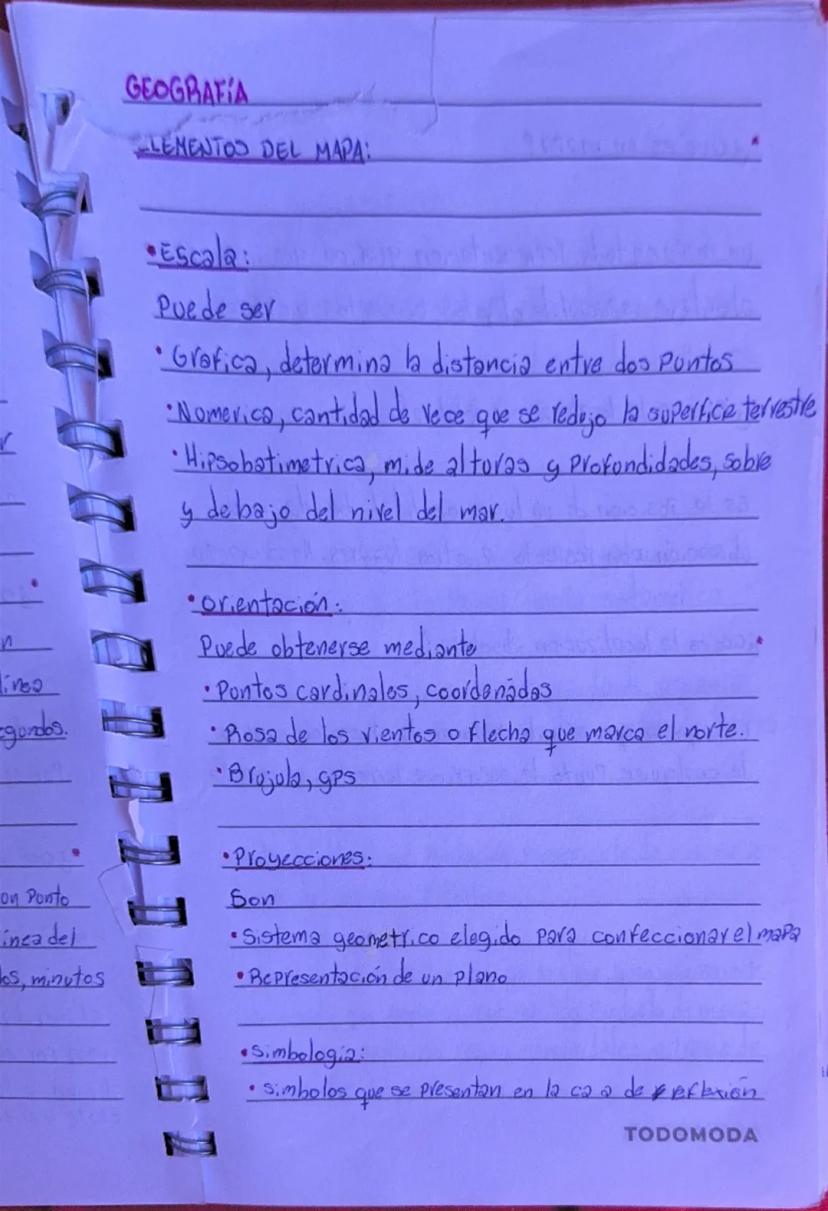 GEOGRAFÍA
ELEMENTOS DEL MAPA:
• Escala:
Puede ser
• Grafica, determina la distancia entre dos Puntos
• Numerica, cantidad de vece que se redujo la superfice terrestre
• Hipsobatimetrica, mide alturas y Profundidades, sobre
y debajo del nivel del mar.
• orientación:
Puede obtenerse mediante
• Puntos cardinales, coordenadas
• Rosa de los vientos o flecha que marca el norte.
• Brujula, gps
• Proyecciones:
Son
• Sistema geometrico elegido para confeccionar el mapa
• Representación de un plano
• Simbologia:
• Simbolos que se presentan en la de reflexión
TODOMODA
línea
un Punto
línea del
minutos